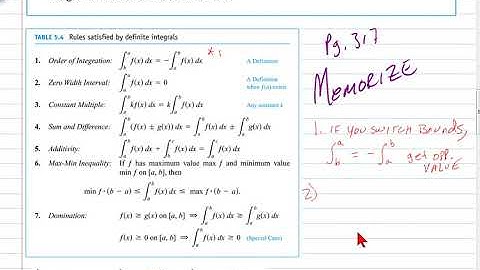 TABLE 5.4 Rules satisfied by definite integrals
1. Order of Integration: ∫_b^a f(x) dx = −∫_a^b f(x) dx *1 A Definition
2. Zero Width Interval: ∫_a^a f(x) dx = 0 A Definition
when f(a) exists
3. Constant Multiple: ∫_a^b kf(x) dx = k ∫_a^b f(x) dx Any constant k
4. Sum and Difference: ∫_a^b (f(x) ± g(x)) dx = ∫_a^b f(x) dx ± ∫_a^b g(x) dx
5. Additivity: ∫_a^b f(x) dx + ∫_b^c f(x) dx = ∫_a^c f(x) dx
6. Max-Min Inequality: If f has maximum value max f and minimum value
min f on [a, b], then
min f · (b − a) ≤ ∫_a^b f(x) dx ≤ max f · (b − a).
7. Domination: f(x) ≥ g(x) on [a, b] ⇒ ∫_a^b f(x) dx ≥ ∫_a^b g(x) dx
f(x) ≥ 0 on [a, b] ⇒ ∫_a^b f(x) dx ≥ 0 (Special Case)
Pg. 317
MEMORIZE
1. IF you SWITCH BOUNDS,
∫_b^a = −∫_a^b get opp.
VALUE
2)